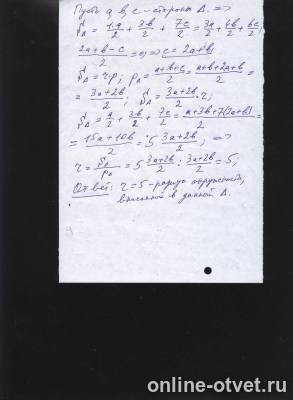 Пусть a, b, c – стороны Δ. =>
S_Δ = 1·a/2 + 3b/2 + 7c/2 = 3a/2 + 4b/2 + 6c/2;
2a+b-c/2 = 0 => c = 2a+b;
S_Δ = r p; p_Δ = a+b+c/2 = a+b+2a+b/2 =
= 3a+2b/2; S_Δ = 3a+2b/2 · r;
S_Δ = a/2 + 3b/2 + 7c/2 = a+3b+7(2a+b)/2 =
= 15a+10b/2 = 5 3a+2b/2; =>
r = S_Δ/p_Δ = 5 3a+2b/2 : 3a+2b/2 = 5;
Ответ: r = 5 – радиус окружности,
вписанной в данный Δ.
online-otvet.ru